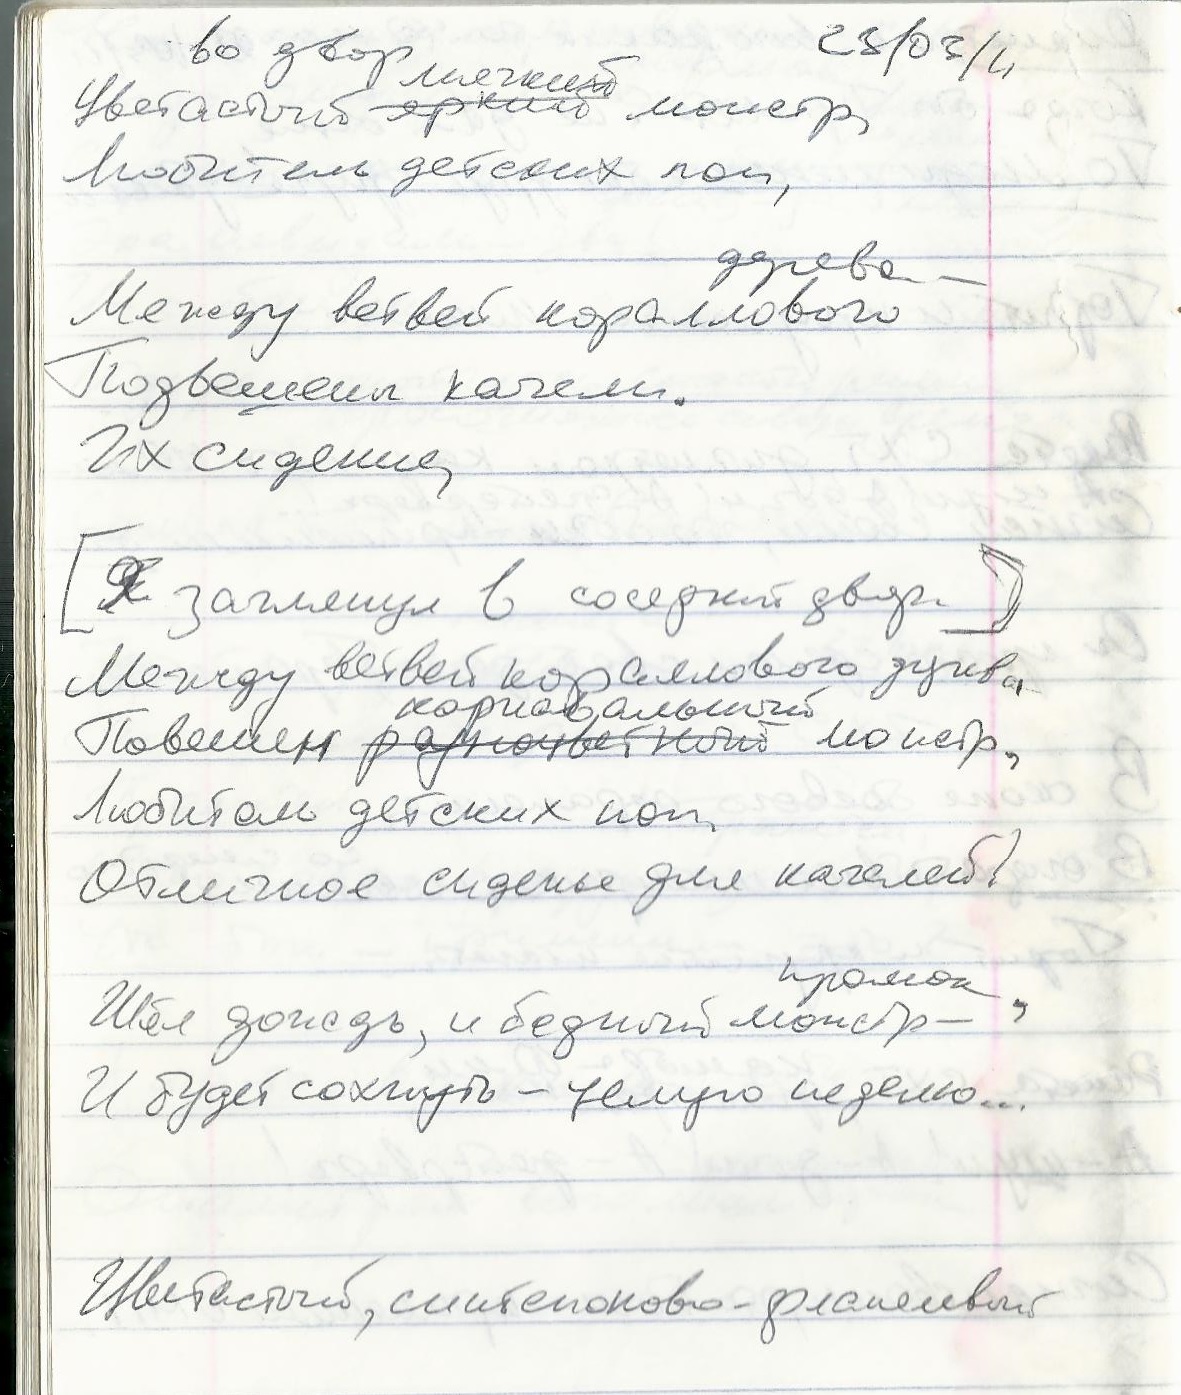 во двор
23/03/11
мягкий
Цветастый яркий монстр,
Любитель детских поп,
дерева —
Между ветвей кораллового
Подвешены качели.
Их сидение,
[Я заглянул в соседний двор.]
Между ветвей кораллового дерева
карнавальный
Повешен разноцветный монстр,
Любитель детских поп,
Отличное сиденье для качелей!
промок,
Шёл дождь, и бедный монстр —
И будет сохнуть – целую неделю...
Цветастый, синтепоново-фланелевый